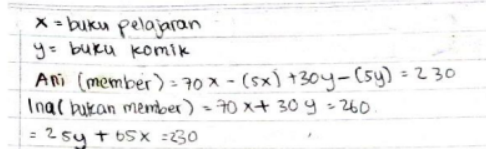 x = buku pelajaran
y = buku komik
Ani (member) = 70x - (5x) + 30y - (5y) = 230
Ina (bukan member) = 70x + 30y = 260.
= 25y + 65x = 230